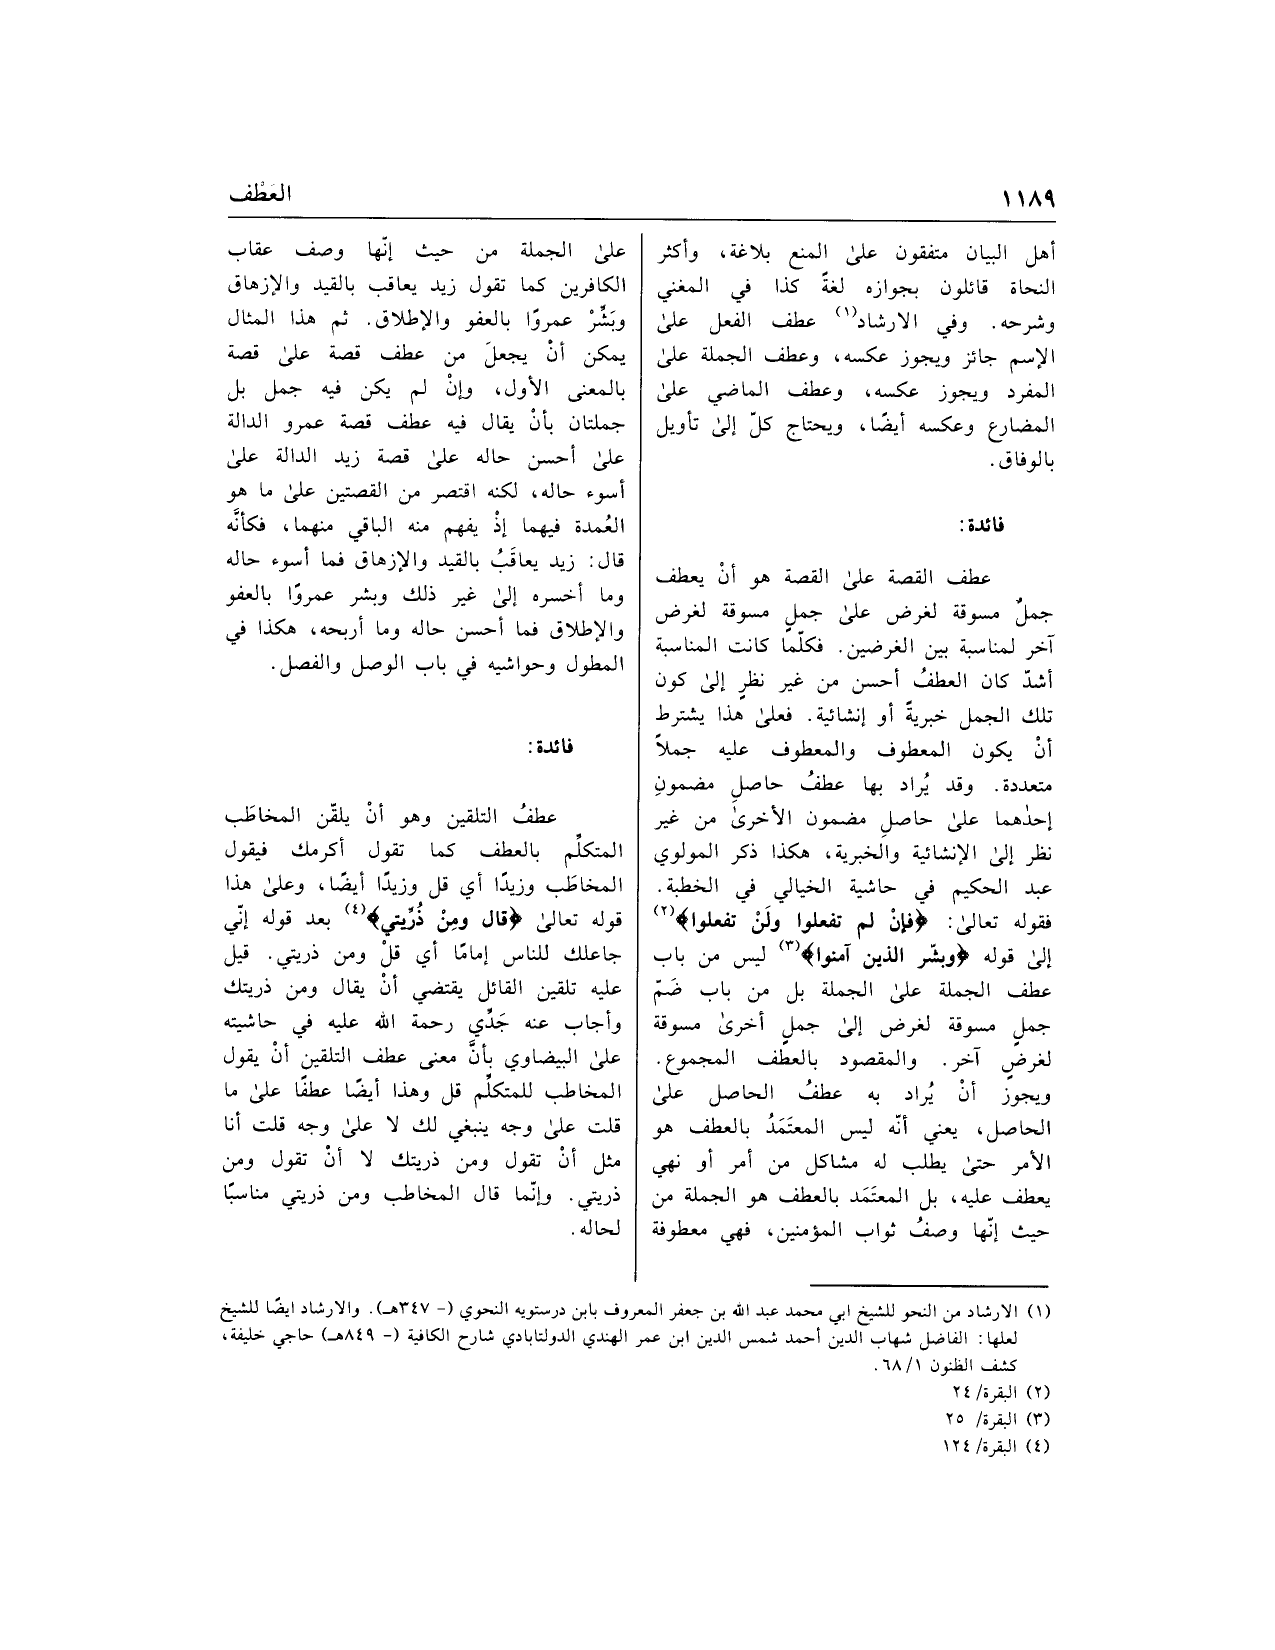 ١١٨٩
العَطْف
أهل البيان متفقون علىٰ المنع بلاغة، وأكثر
النحاة قائلون بجوازه لغةً كذا في المغني
وشرحه. وفي الارشاد(١) عطف الفعل علىٰ
الإسم جائز ويجوز عكسه، وعطف الجملة علىٰ
المفرد ويجوز عكسه، وعطف الماضي علىٰ
المضارع وعكسه أيضًا، ويحتاج كلّ إلىٰ تأويل
بالوفاق.
فائدة:
عطف القصة علىٰ القصة هو أنْ يعطف
جملٌ مسوقة لغرض علىٰ جملٍ مسوقة لغرض
آخر لمناسبة بين الغرضين. فكلّما كانت المناسبة
أشدّ كان العطفُ أحسن من غير نظرٍ إلىٰ كون
تلك الجمل خبريةً أو إنشائية. فعلىٰ هذا يشترط
أنْ يكون المعطوف والمعطوف عليه جملاً
متعددة. وقد يُراد بها عطفُ حاصلِ مضمونِ
إحدٰهما علىٰ حاصلِ مضمون الأخرىٰ من غير
نظر إلىٰ الإنشائية والخبرية، هكذا ذكر المولوي
عبد الحكيم في حاشية الخيالي في الخطبة.
فقوله تعالىٰ: ﴿فإنْ لم تفعلوا ولَنْ تفعلوا﴾(٢)
إلىٰ قوله ﴿وبشّر الذين آمنوا﴾(٣) ليس من باب
عطف الجملة علىٰ الجملة بل من باب ضَمّ
جملٍ مسوقة لغرض إلىٰ جملٍ أخرىٰ مسوقة
لغرضٍ آخر. والمقصود بالعطف المجموع.
ويجوز أنْ يُراد به عطفُ الحاصل علىٰ
الحاصل، يعني أنّه ليس المعتَمَدُ بالعطف هو
الأمر حتىٰ يطلب له مشاكل من أمر أو نهي
يعطف عليه، بل المعتَمَد بالعطف هو الجملة من
حيث إنّها وصفُ ثواب المؤمنين، فهي معطوفة
علىٰ الجملة من حيث إنّها وصف عقاب
الكافرين كما تقول زيد يعاقب بالقيد والإزهاق
وبَشِّرْ عمروًا بالعفو والإطلاق. ثم هذا المثال
يمكن أنْ يجعلَ من عطف قصة علىٰ قصة
بالمعنى الأول، وإنْ لم يكن فيه جمل بل
جملتان بأنْ يقال فيه عطف قصة عمرو الدالة
علىٰ أحسن حاله علىٰ قصة زيد الدالة علىٰ
أسوء حاله، لكنه اقتصر من القصتين علىٰ ما هو
العُمدة فيهما إذْ يفهم منه الباقي منهما، فكأنَّه
قال: زيد يعاقَبُ بالقيد والإزهاق فما أسوء حاله
وما أخسره إلىٰ غير ذلك وبشر عمروًا بالعفو
والإطلاق فما أحسن حاله وما أربحه، هكذا في
المطول وحواشيه في باب الوصل والفصل.
فائدة:
عطفُ التلقين وهو أنْ يلقّن المخاطَب
المتكلِّم بالعطف كما تقول أكرمك فيقول
المخاطَب وزيدًا أي قل وزيدًا أيضًا، وعلىٰ هذا
قوله تعالىٰ ﴿قال ومِنْ ذُرِّيتي﴾(٤) بعد قوله إنّي
جاعلك للناس إمامًا أي قلْ ومن ذريتي. قيل
عليه تلقين القائل يقتضي أنْ يقال ومن ذريتك
وأجاب عنه جَدِّي رحمة الله عليه في حاشيته
علىٰ البيضاوي بأنَّ معنى عطف التلقين أنْ يقول
المخاطب للمتكلِّم قل وهذا أيضًا عطفًا علىٰ ما
قلت علىٰ وجه ينبغي لك لا علىٰ وجه قلت أنا
مثل أنْ تقول ومن ذريتك لا أنْ تقول ومن
ذريتي. وإنّما قال المخاطب ومن ذريتي مناسبًا
لحاله.
(١) الارشاد من النحو للشيخ ابي محمد عبد الله بن جعفر المعروف بابن درستويه النحوي (- ٣٤٧هـ). والارشاد ايضًا للشيخ
لعلها: الفاضل شهاب الدين أحمد شمس الدين ابن عمر الهندي الدولتابادي شارح الكافية (- ٨٤٩هـ) حاجي خليفة،
كشف الظنون ١/ ٦٨.
(٢) البقرة/ ٢٤
(٣) البقرة/ ٢٥
(٤) البقرة/ ١٢٤